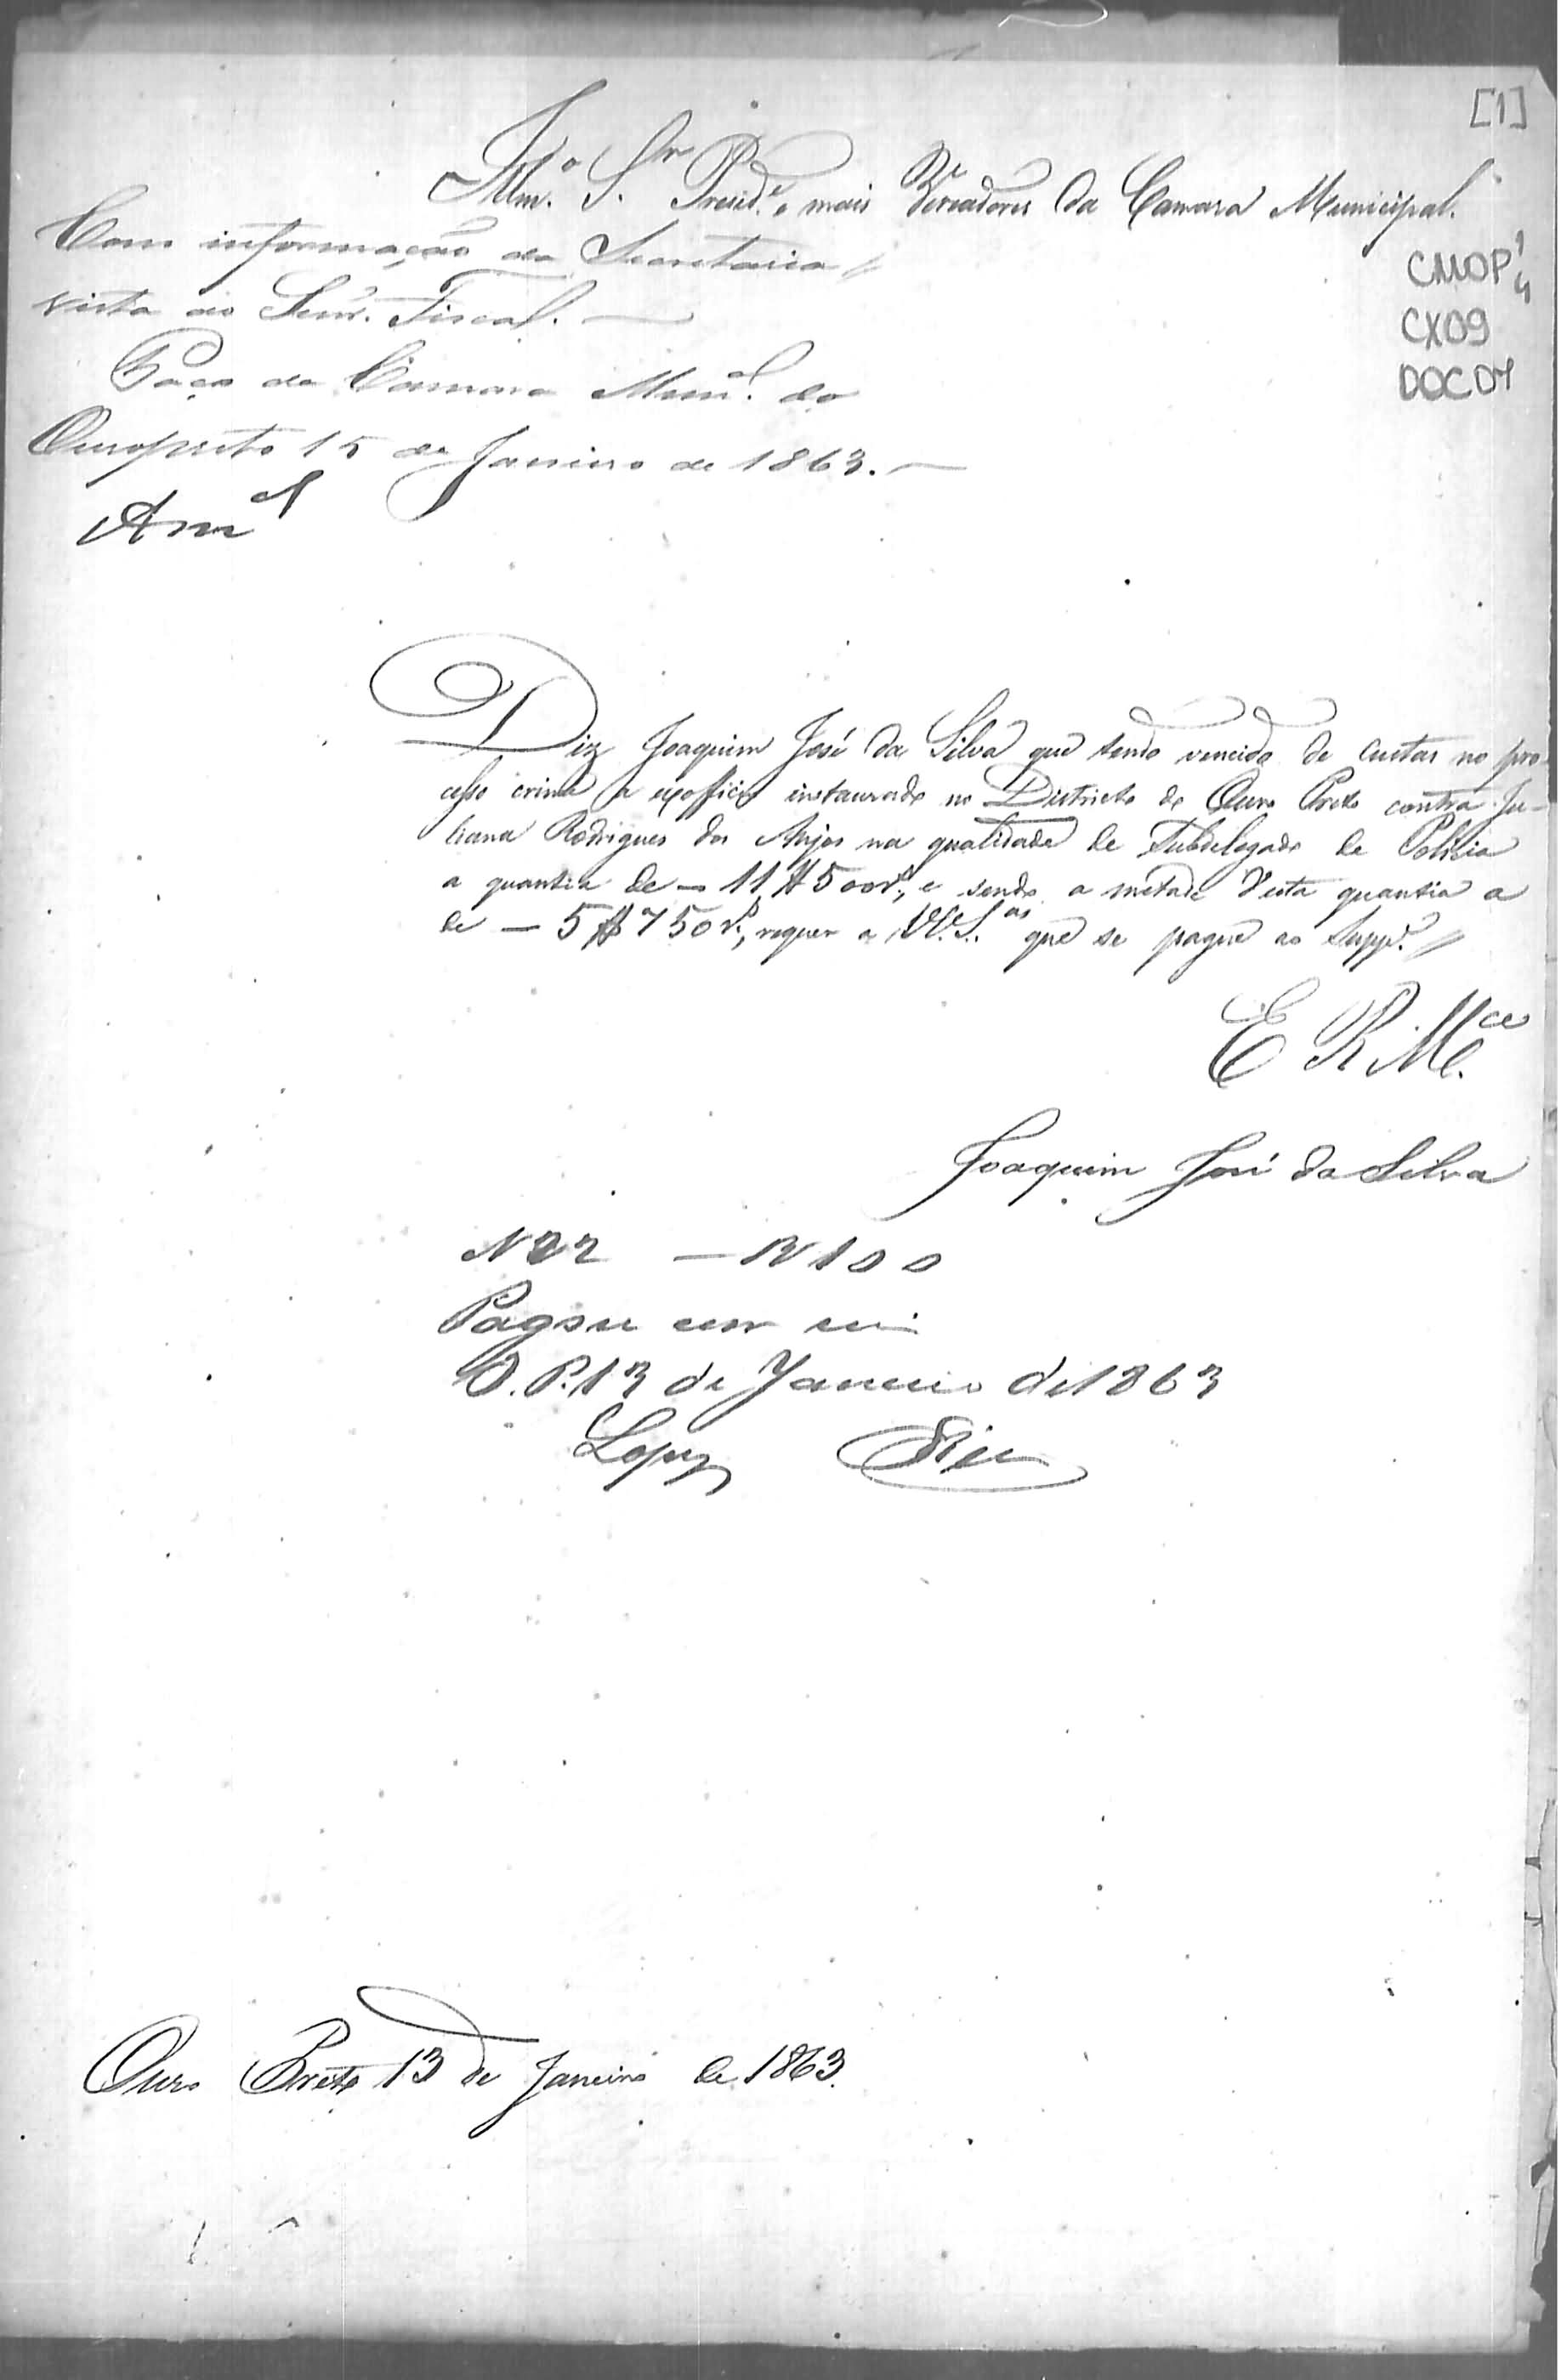 [1]
Illmo. Sr. Presid.e e mais Vereadores da Camara Municipal.
CMOP
CX09
DOC07
Com informação da Secretaria
vista ao Senr. Fiscal.
Paço da Camara Mun.al do
Ouropreto 15 de Janeiro de 1863.
Am.al
Diz Joaquim José da Silva que tendo vencido de custas no pro-
cesso crime a exofficio instaurado no Districto de Ouro Preto contra Ju-
liana Rodrigues dos Anjos na qualidade de Subdelegado de Policia
a quantia de — 11$500rs., e sendo a metade d'esta quantia a
de — 5$750rs., requer a VV.S.as que se pague ao Supp.e
E R M.ce
Joaquim José da Silva
N 22 — R 100
Pagou cem reis
O. P. 13 de Janeiro de 1863
Lopes
Ouro Preto 13 de Janeiro de 1863.